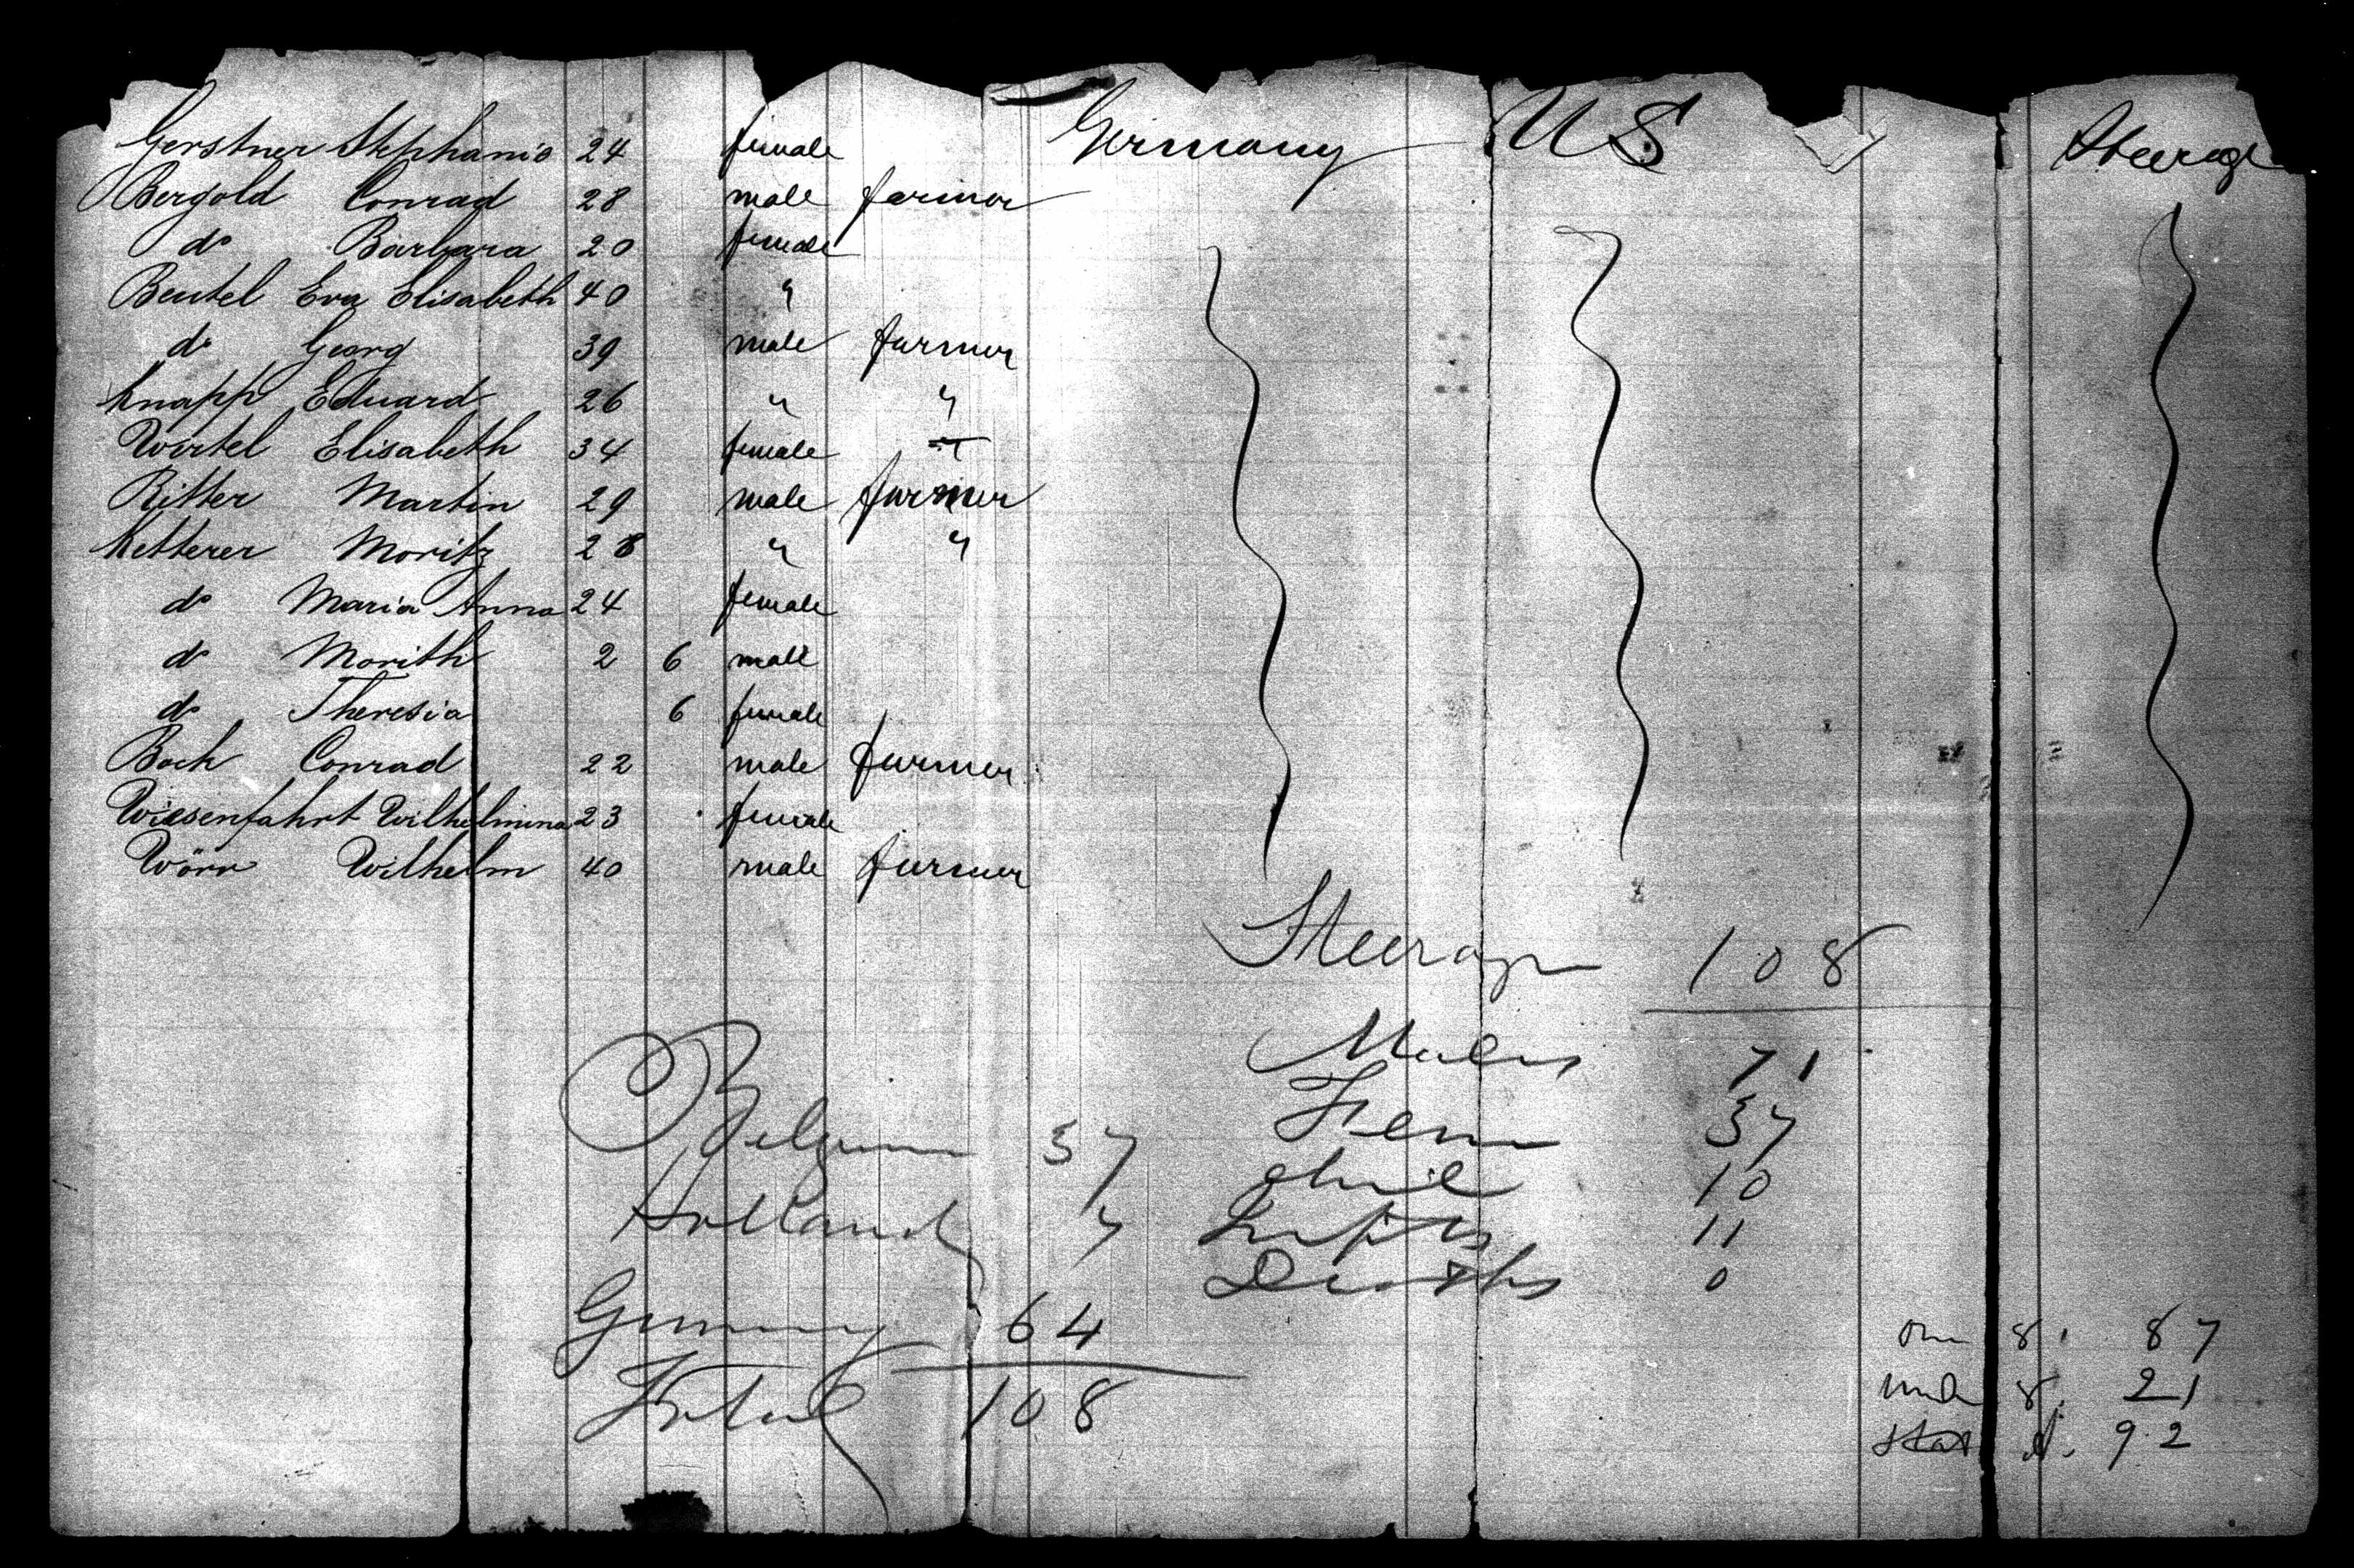 Gerstner Stephanie 24 female Germany US Steerage
Bergold Conrad 28 male farmer
do Barbara 20 female
Beutel Eva Elisabeth 40 "
do Georg 39 male farmer
Knapp Eduard 26 " "
Wirtel Elisabeth 34 female
Ritter Martin 29 male farmer
Ketterer Moritz 28 " "
do Maria Anna 24 female
do Morith 2 6 male
do Theresia 6 female
Boch Conrad 22 male farmer
Wiesenfahrt Wilhelmina 23 female
Wörr Wilhelm 40 male farmer
Steerage 108
Males 71
Fem 37
Belgium 37
Chil 10
Holland 7
Infts 11
Deaths 0
Germany 64
Total 108
over 8. 87
under 8. 21
Stat A. 92